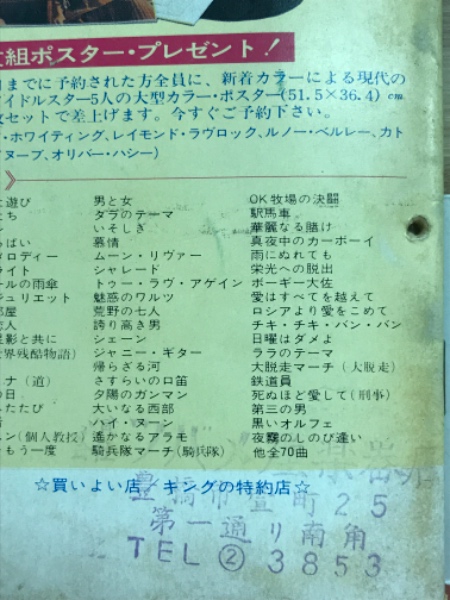 組ポスター・プレゼント!
までに予約された方全員に、新着カラーによる現代の
アイドルスター5人の大型カラー・ポスター(51.5×36.4)cm
セットで差上げます。今すぐご予約下さい。
・ホワイティング、レイモンド・ラヴロック、ルノー・ベルレー、カト
ヌーブ、オリバー・ハシー)
遊び 男と女 OK牧場の決闘
タラのテーマ 駅馬車
いそしぎ 華麗なる賭け
ぱい 慕情 真夜中のカーボーイ
メロディー ムーン・リヴァー 雨にぬれても
ライト シャレード 栄光への脱出
ールの雨傘 トゥー・ラヴ・アゲイン ボーギー大佐
ジュリエット 魅惑のワルツ 愛はすべてを越えて
部屋 荒野の七人 ロシアより愛をこめて
誇り高き男 チキ・チキ・バン・バン
星影と共に シェーン 日曜はダメよ
世界残酷物語) ジャニー・ギター ララのテーマ
帰らざる河 大脱走マーチ(大脱走)
ナ(道) さすらいの口笛 鉄道員
の日 夕陽のガンマン 死ぬほど愛して(刑事)
ふたたび 大いなる西部 第三の男
ハイ・ヌーン 黒いオルフェ
ン(個人教授) 遙かなるアラモ 夜霧のしのび逢い
もう一度 騎兵隊マーチ(騎兵隊) 他全70曲
☆買いよい店/キングの特約店☆
豊橋市萱町25
第一通り南角
TEL②3853